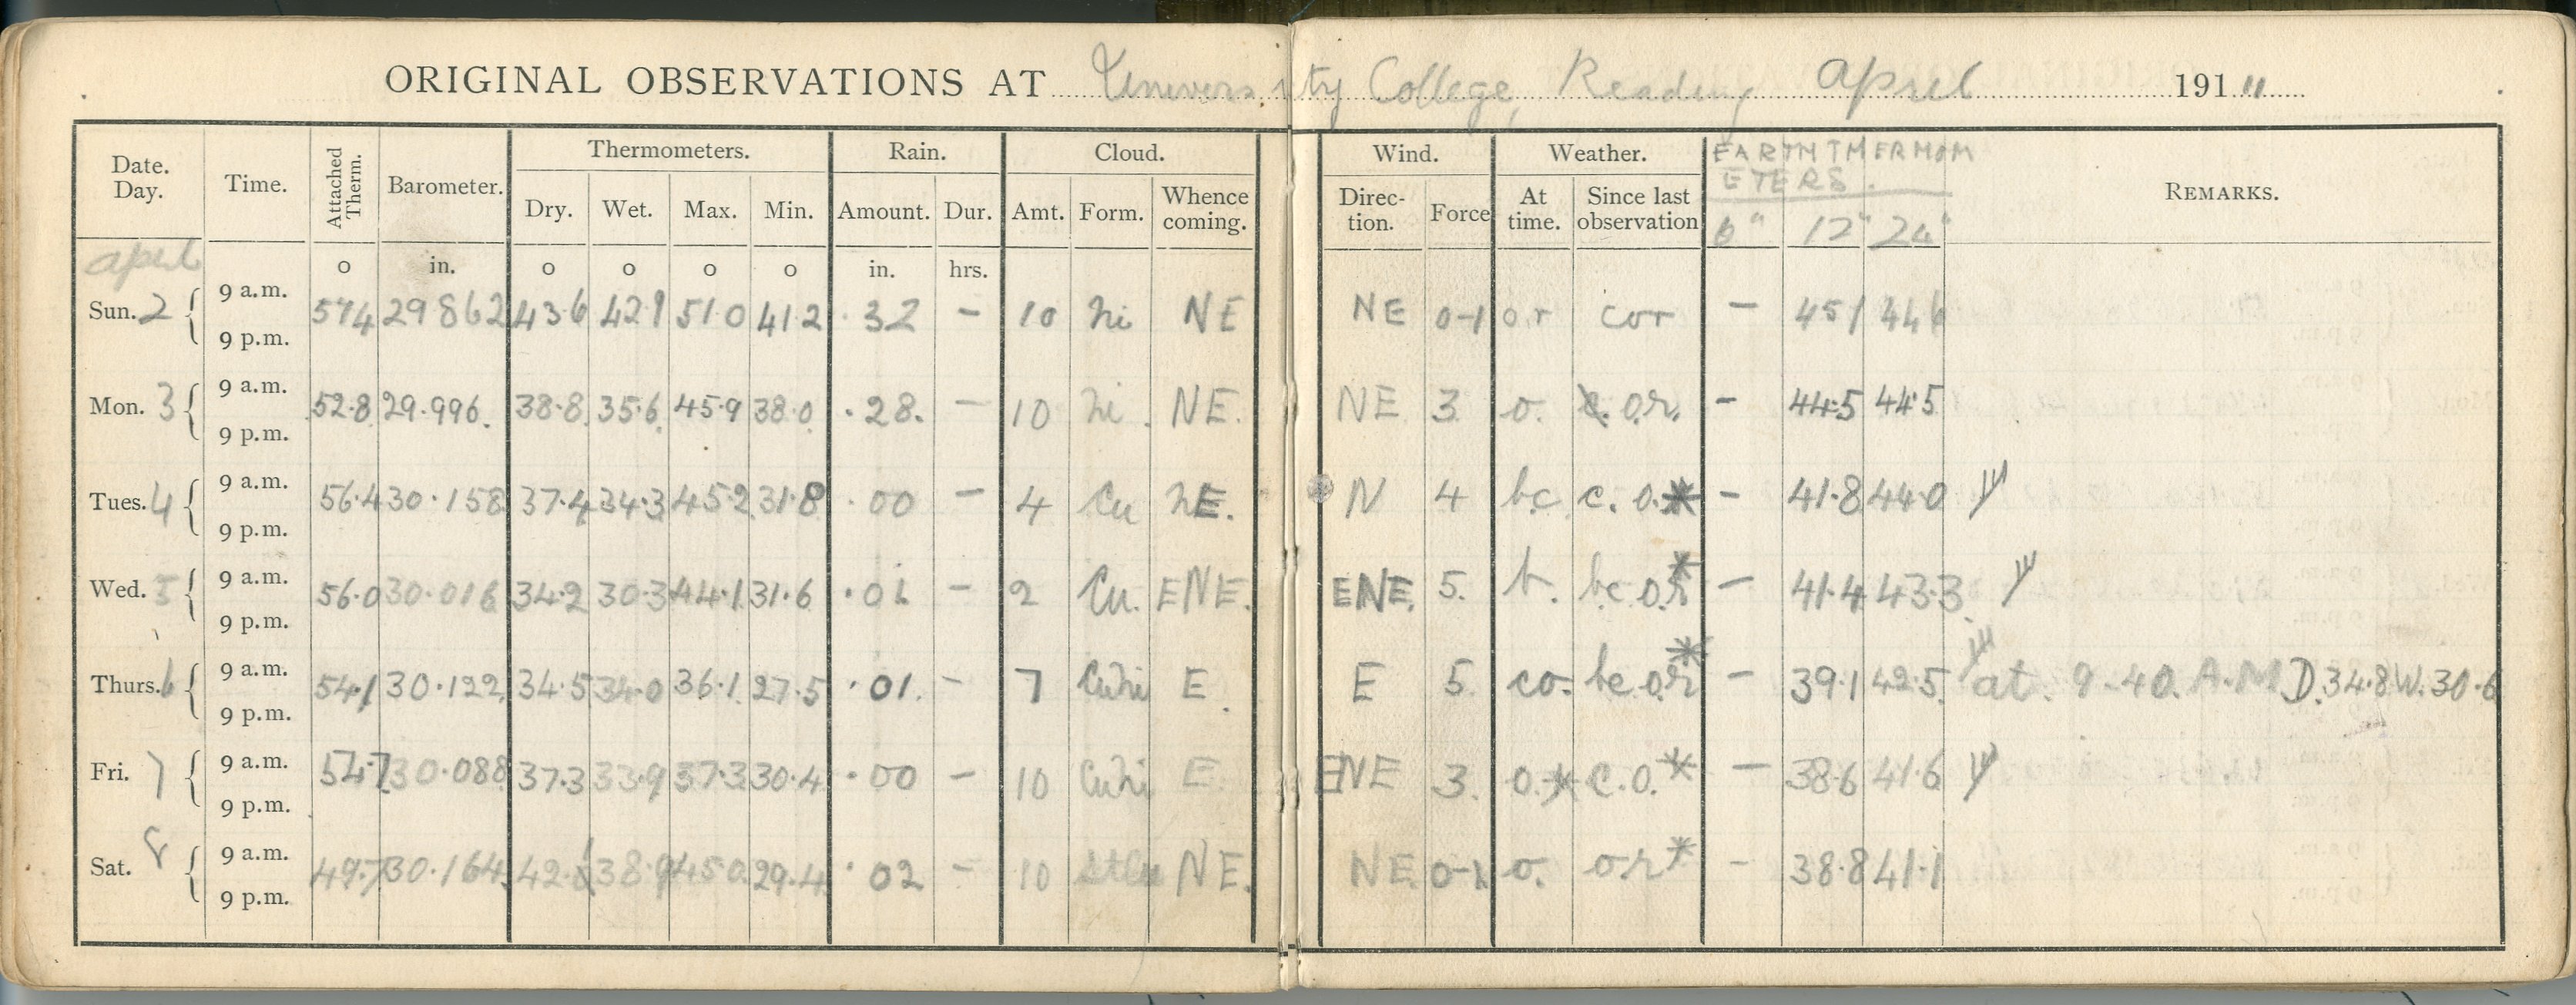 ORIGINAL OBSERVATIONS AT University College, Reading April 1911
Date. Day. Time. Attached Therm. Barometer. Thermometers. Rain. Cloud. Wind. Weather. EARTH THERMOM ETERS. REMARKS.
Dry. Wet. Max. Min. Amount. Dur. Amt. Form. Whence coming. Direc- tion. Force At time. Since last observation 6" 12" 24"
April o in. o o o o in. hrs.
Sun. 2 { 9 a.m. 57.4 29.862 43.6 42.9 51.0 41.2 .32 – 10 Ni NE NE 0-1 o r cor – 45.1 44.6
9 p.m.
Mon. 3 { 9 a.m. 52.8 29.996. 38.8 35.6 45.9 38.0 .28. – 10 Ni. NE. NE 3 o. o.r. – 44.5 44.5
9 p.m.
Tues. 4 { 9 a.m. 56.4 30.158 37.4 34.3 45.2 31.8 .00 – 4 Cu NE. N 4 bc c. o.* – 41.8 44.0
9 p.m.
Wed. 5 { 9 a.m. 56.0 30.016 34.2 30.3 44.1 31.6 .01 – 2 Cu. ENE. ENE. 5. b. bc o.r* – 41.4 43.3
9 p.m.
Thurs. 6 { 9 a.m. 54.1 30.122 34.5 34.0 36.1 27.5 .01. – 7 CuNi E. E 5 co. bc o.r* – 39.1 42.5 at. 9-40. A.M D.34.8 W.30.6
9 p.m.
Fri. 7 { 9 a.m. 54.7 30.088 37.3 33.9 37.3 30.4 .00 – 10 CuNi E. ENE 3. o.* c.o.* – 38.6 41.6
9 p.m.
Sat. 8 { 9 a.m. 49.7 30.164 38.9 45.0 29.4 .02 – 10 StCu NE. NE. 0-1 o. or* – 38.8 41.1
9 p.m.